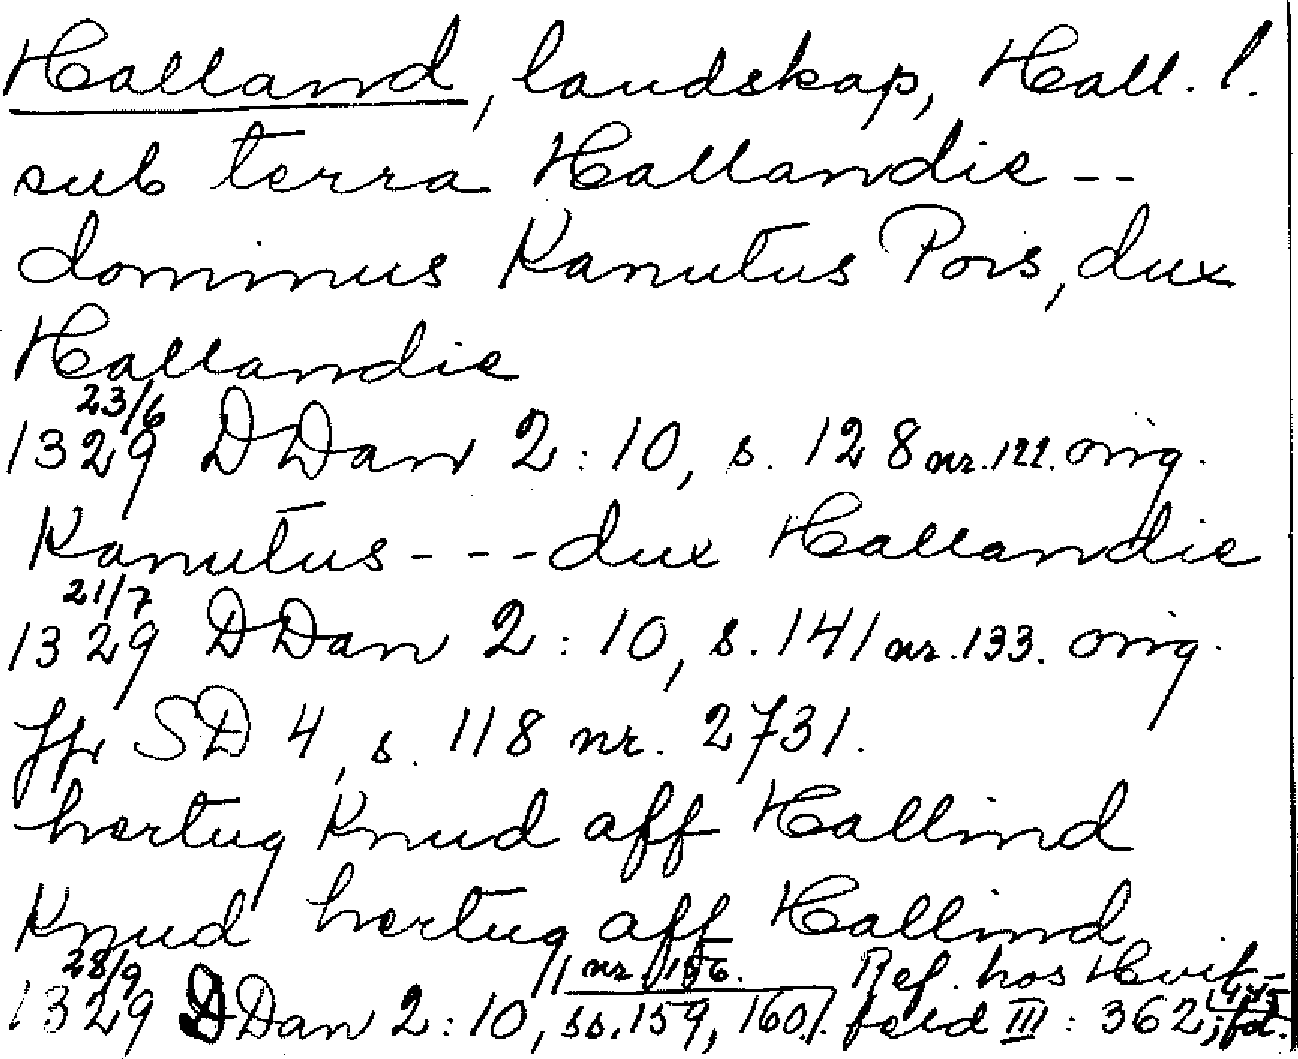 Halland, landskap, Hall. l.
sub terra Hallandie --
dominus Kanutus Pors, dux
Hallandie
23/6
1329 DDan 2:10, s. 128 nr. 122. orig.
Kanutus --- dux Hallandie
21/7
1329 DDan 2:10, s. 141 nr. 133. orig.
Jfr SD 4, s. 118 nr. 2731.
hertug Knud aff Hallind
Knud hertug aff Hallind
28/9 nr 156. Ref. hos Hvit-
1329 DDan 2:10, ss. 159, 160. feld III: 362,